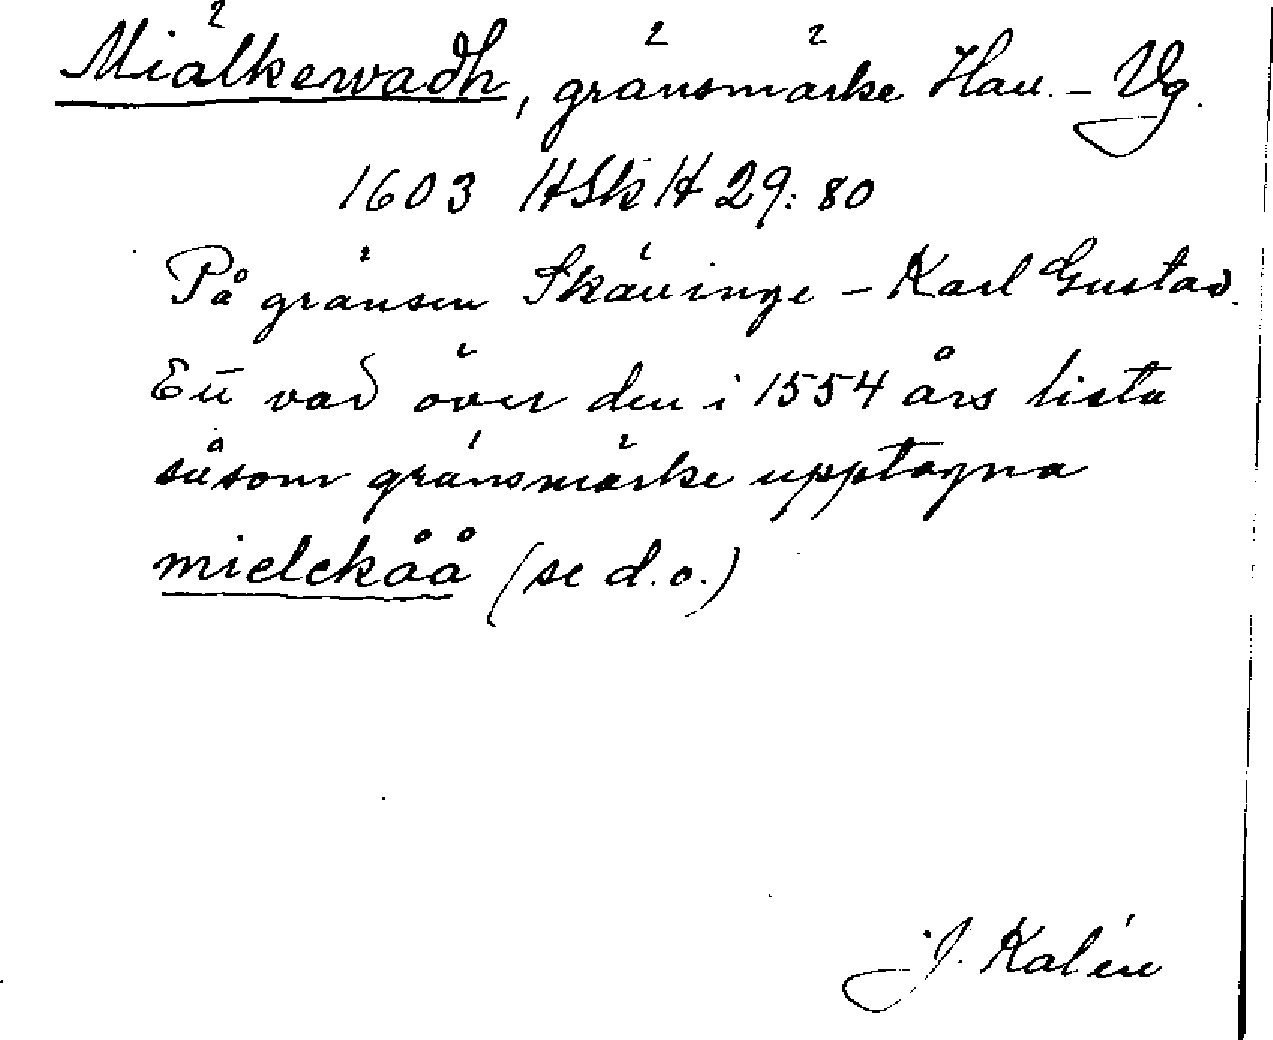 Miälkewadh, gränsmärke Hall. – Vg.
1603 HSkH 29: 80
På gränsen Skällinge – Karl Gustav.
Ett vad över den i 1554 års lista
såsom gränsmärke upptagna
mielekåå (se d.o.)
J. Kalén